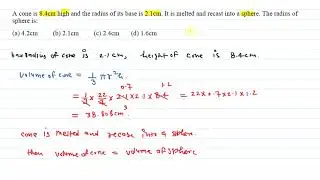 A cone is 8.4cm high and the radius of its base is 2.1cm. It is melted and recast into a sphere. The radius of
sphere is:
(a) 4.2cm (b) 2.1cm (c) 2.4cm (d) 1.6cm
radius of cone is 2.1cm, height of cone is 8.4cm.
Volume of cone = 1/3 πr²h
= 1/3 × 22/7 × 2.1 × 2.1 × 8.4 = 22×0.7×2.1×1.2
0.7 1.2
= 38.808cm³
cone is melted and recase into a sphere.
then volume of cone = volume of sphere